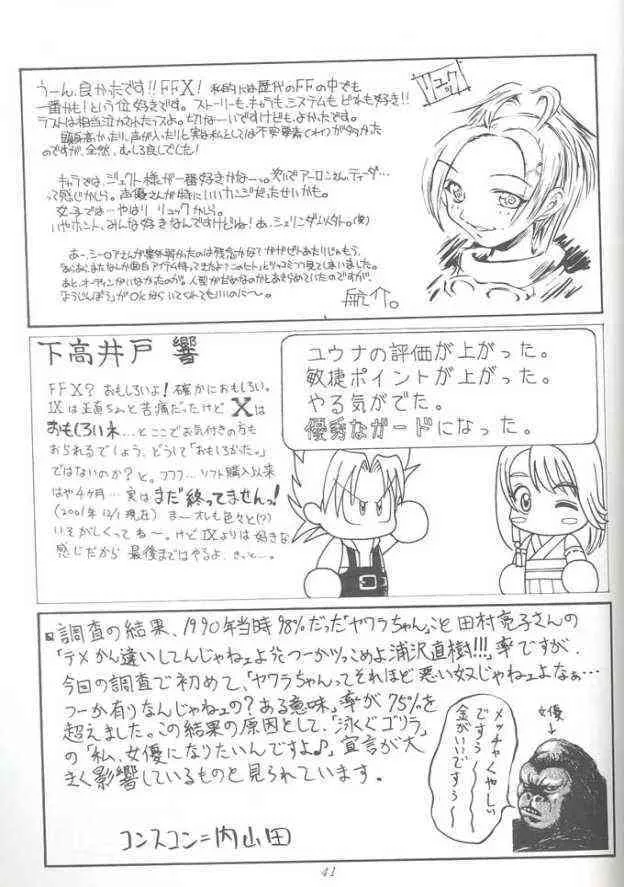 うーん、良かったです!! FFX! 私的には歴代のFFの中でも
一番かも!という位好きです。ストーリーも、キャラも、システムも どれも好き!!
ラストは相当泣かされたっスよ。切なーいですけども、よかったです。
頭身高かったり、声が入ったりと実は私としては不安要素てわりが多かった
のですが、全然、むしろ良しでした!
キャラでは、ジェクト様が一番好きかなー。次いでアーロンさん、ティーダ…
って感じかしら。声優さんが特にいいカンジだったせいかも。
女子では…やはり リュックかしら。
いやホント、みんな好きなんですけどね!あ、シェリンダ以外。(笑)
あー、シーモアさんが案外弱かったのは残念かな?
リュック
下高井戸 響
FFX? おもしろいよ!確かにおもしろい。
IXは正直ちょっと苦痛だったけど Xは
おもしろいネ…とここでお気付きの方も
おられるでしょう、どうして「おもしろかった。」
ではないのか?と。フフフ…ソフト購入以来
はや4ヶ月…実はまだ終ってませんっ!
(2001年12/1現在) まーオレも色々と(?)
いそがしくってね〜。けどIXよりは好きな
感じだから 最後まではやるよ、きっと…。
ユウナの評価が上がった。
敏捷ポイントが上がった。
やる気がでた。
優秀なガードになった。
調査の結果、1990年当時98%だった「ヤワラちゃん」こと田村亮子さんの
「テメかん違いしてんじゃねェよ、つーかツッこめよ浦沢直樹!!!」率ですが、
今回の調査で初めて、「ヤワラちゃんってそれほど悪い奴じゃねェよなぁ…
つーか有りなんじゃねェの?ある意味」率が75%を
超えました。この結果の原因として、「泳ぐゴリラ」
の「私、女優になりたいんですよ♪」宣言が大
きく影響しているものと見られています。
コンスコン=内山田
メッチャくやしい
ですぅ〜
金がいいですぅ〜
女優
↓
41